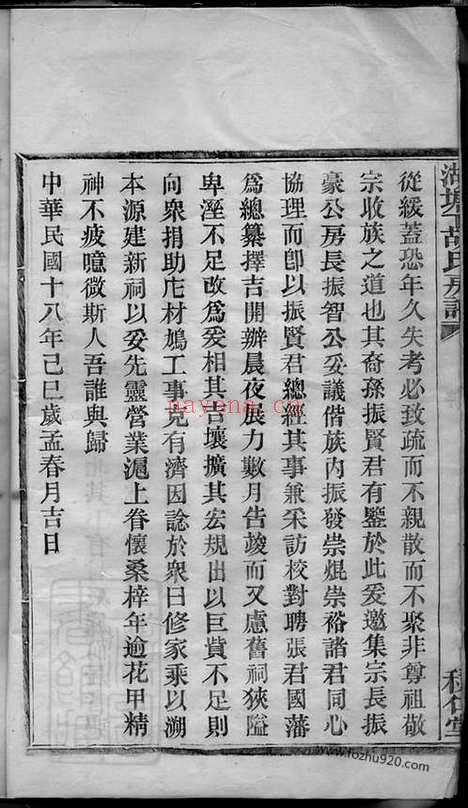 從緩蓋恐年久失考必致疏而不親散而不聚非尊祖敬
宗收族之道也其裔孫振賢君有鑒於此爰邀集宗長振
豪公房長振智公妥議偕族内振發崇焜崇裕諸君同心
協理而卽以振賢君總經其事兼采訪校對聘張君國藩
爲總纂擇吉開辦晨夜展力數月告竣而又慮舊祠狹隘
卑溼不足改爲爰相其吉壤擴其宏規出以巨貲不足則
向衆捐助庀材鳩工事克有濟因諗於衆曰修家乘以溯
本源建新祠以妥先靈營業滬上眷懷桑梓年逾花甲精
神不疲噫微斯人吾誰與歸
中華民國十八年己巳歲孟春月吉日
nayona.cn
www.fozhu920.com